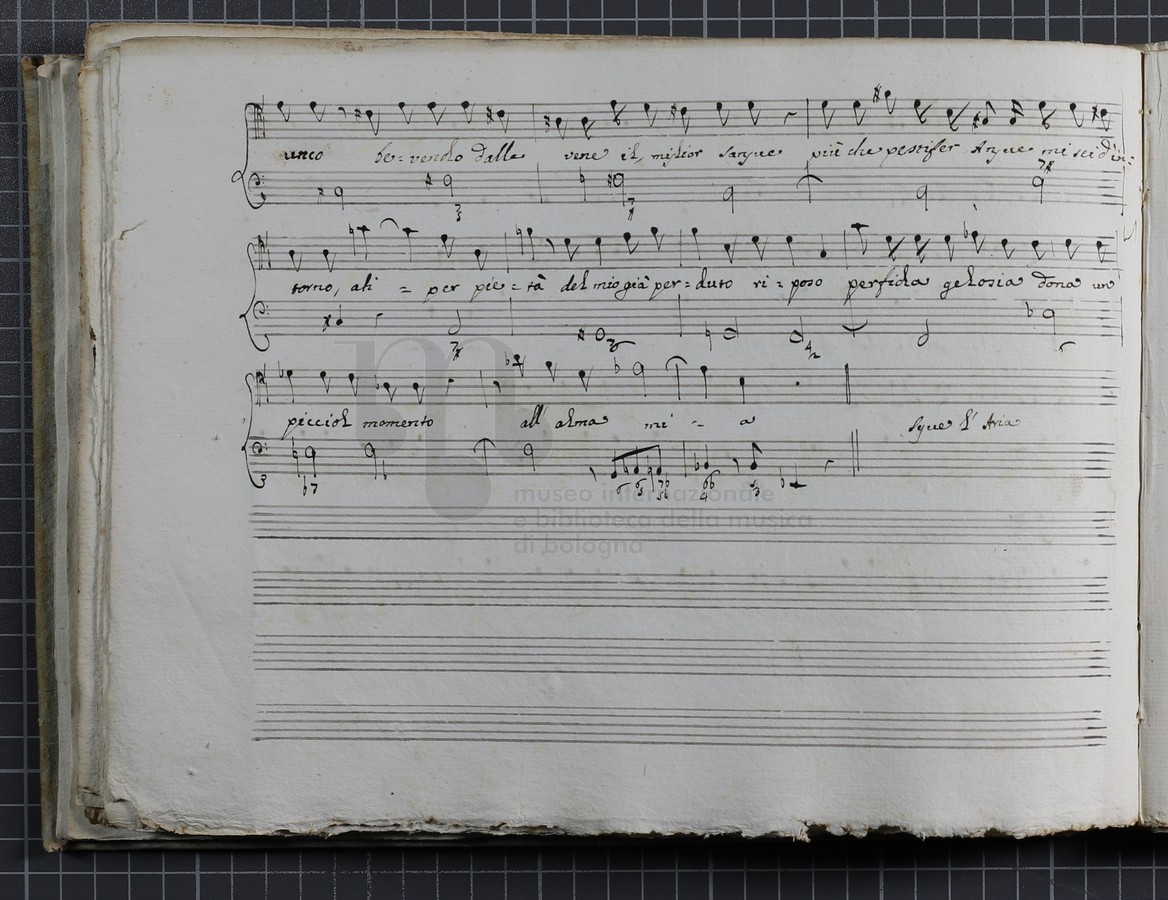 unco be=vendo dalle vene il miglior sangue più che pestifer Angue mi sei d'in=
torno, ah = per pie=tà del mio già per=duto ri=poso perfida gelosia dona un
picciol momento all' alma mi - - a Segue l' Aria
museo internazionale
e biblioteca della musica
di bologna